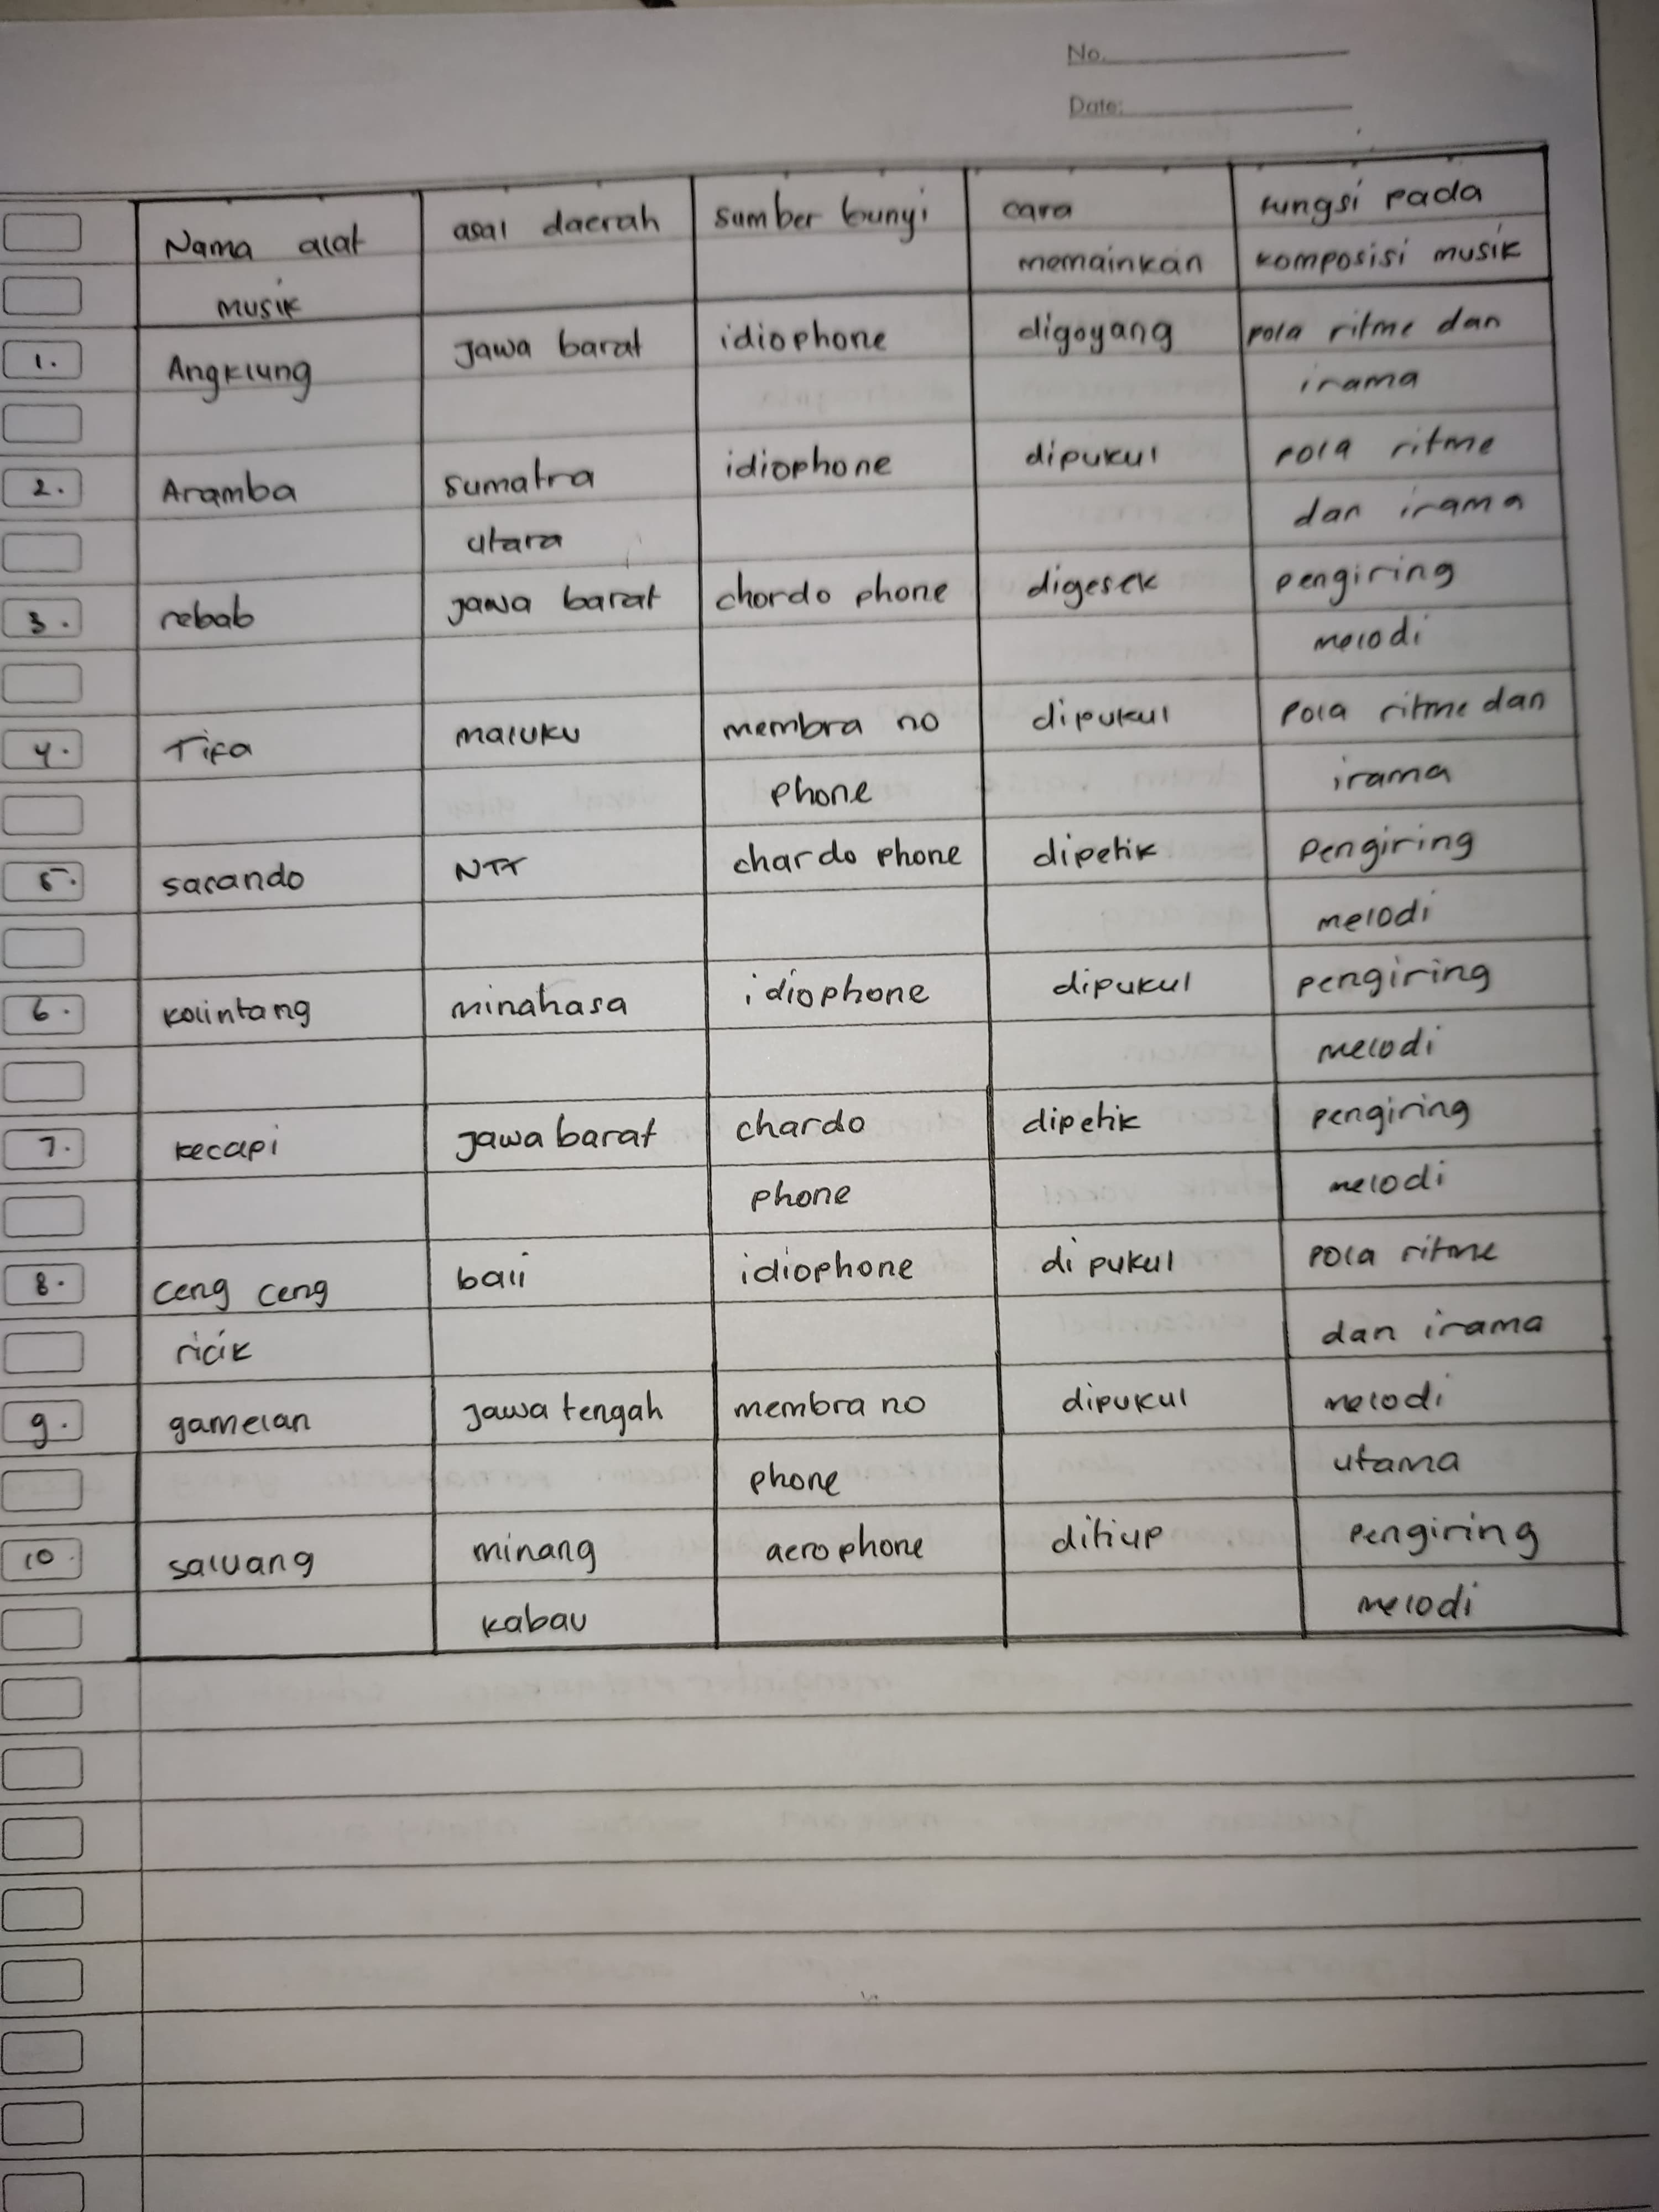 No.
Date:
Nama alat musik | asal daerah | sumber bunyi | cara memainkan | fungsi pada komposisi musik
1. Angklung | Jawa barat | idiophone | digoyang | pola ritme dan irama
2. Aramba | sumatra utara | idiophone | dipukul | pola ritme dan irama
3. rebab | jawa barat | chordo phone | digesek | pengiring melodi
4. Tifa | maluku | membra no phone | dipukul | pola ritme dan irama
5. sasando | NTT | chardo phone | dipetik | pengiring melodi
6. kolintang | minahasa | idiophone | dipukul | pengiring melodi
7. kecapi | jawa barat | chardo phone | dipetik | pengiring melodi
8. ceng ceng ricik | bali | idiophone | di pukul | pola ritme dan irama
9. gamelan | jawa tengah | membra no phone | dipukul | melodi utama
10. saluang | minang kabau | aerophone | ditiup | pengiring melodi